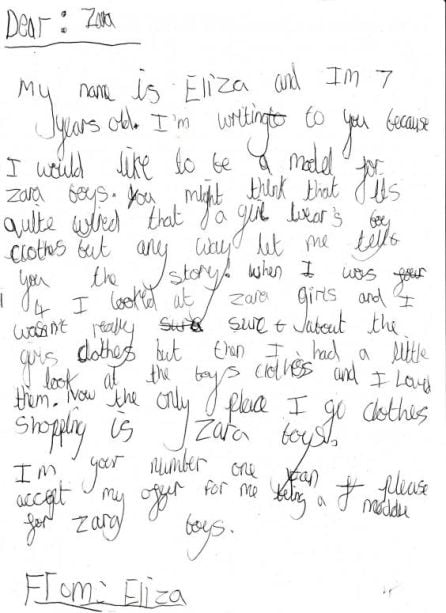 Dear: Zara
My name is Eliza and Im 7
years old. I'm writing to you because
I would like to be a model for
zara boys. you might think that its
quite wired that a girl wear's boy
clothes but any way let me tell
you the story. when I was
4 I looked at zara girls and I
wasn't really sure about the
girls clothes but then I had a little
look at the boys clothes and I Loved
them. Now the only place I go clothes
shopping is zara boys.
I'm your number one fan please
accept my offer for me being a moddle
for zara boys.
From: Eliza